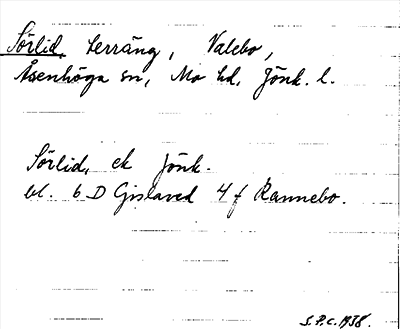 Sörlid, terräng, Valebo,
Åsenhöga sn, Mo hd, Jönk. l.
Sörlid, ek Jönk.
bl. 6 D Gislaved 4 f Rannebo.
S.P.C. 1938.